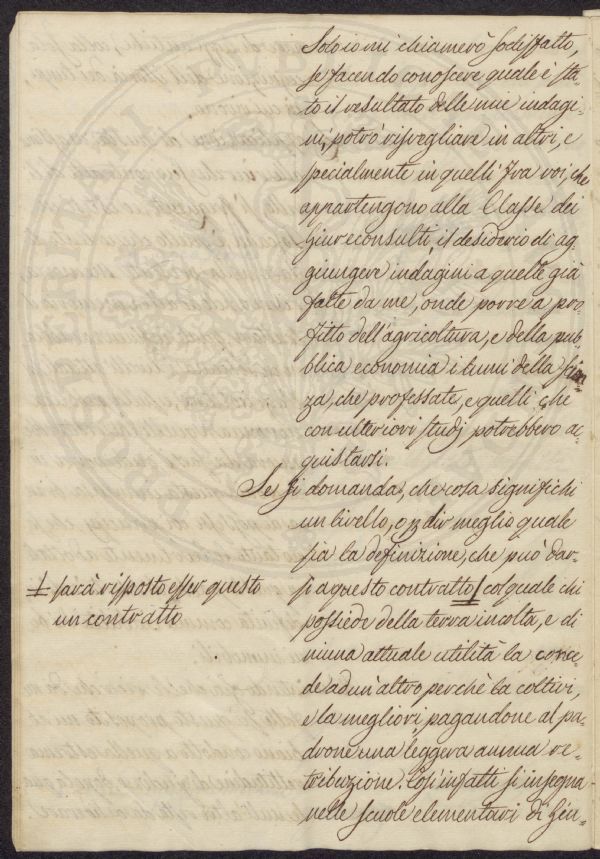 Solo io mi chiamerò sodisfatto,
se facendo conoscere quale è sta-
to il resultato delle mie indagi-
ni, potrò risvegliare in altri, e
specialmente in quelli fra voi, che
appartengono alla Classe dei
Giureconsulti il desiderio di ag
giungere indagini a quelle già
fatte da me, onde porre a pro-
fitto dell'agricoltura, e della pub-
blica economia i lumi della scien-
za, che professate, e quelli, che
con ulteriori studj potrebbero ac-
quistarsi.
Se si domanda, che cosa significhi
un livello, o p dir meglio quale
sia la definizione, che può dar-
si a questo contratto col quale chi
sarà risposto esser questo
un contratto
possiede della terra incolta, e di
niuna attuale utilità la conce-
de ad un'altro perchè la coltivi,
e la megliori, pagandone al pa-
drone una leggera annua re-
tribuzione. Così infatti si insegna
nelle scuole elementari di Giu-